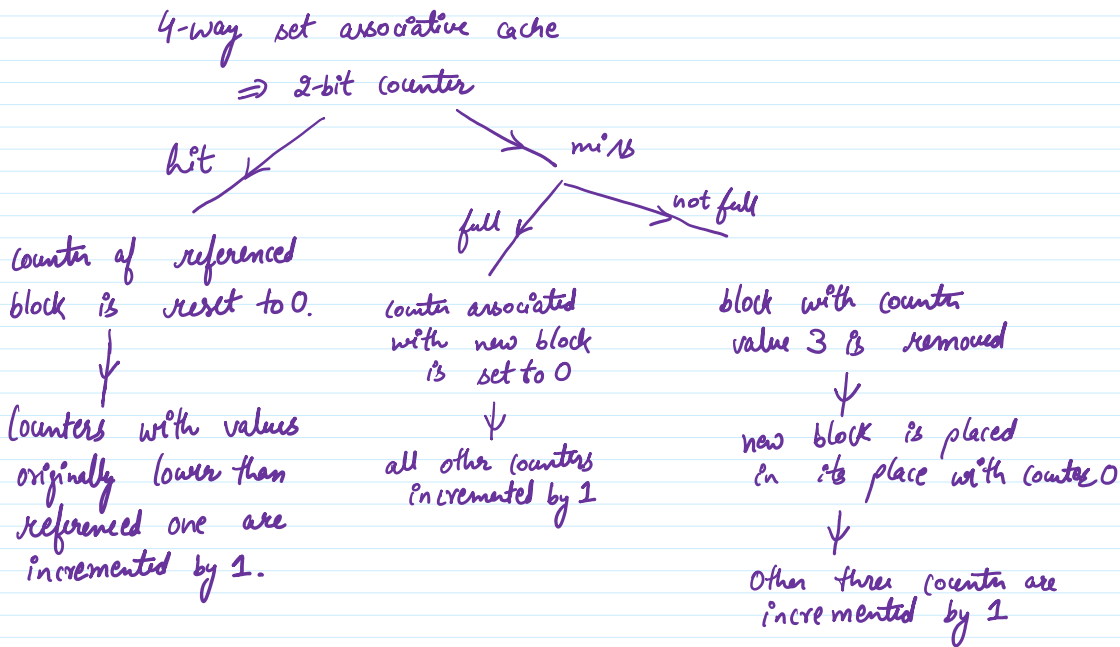 4-way set associative cache
⇒ 2-bit counter
hit
miss
full
not full
counter of referenced
block is reset to 0.
Counters with values
originally lower than
referenced one are
incremented by 1.
counter associated
with new block
is set to 0
all other counters
incremented by 1
block with counter
value 3 is removed
new block is placed
in its place with counter 0
Other three counter are
incremented by 1